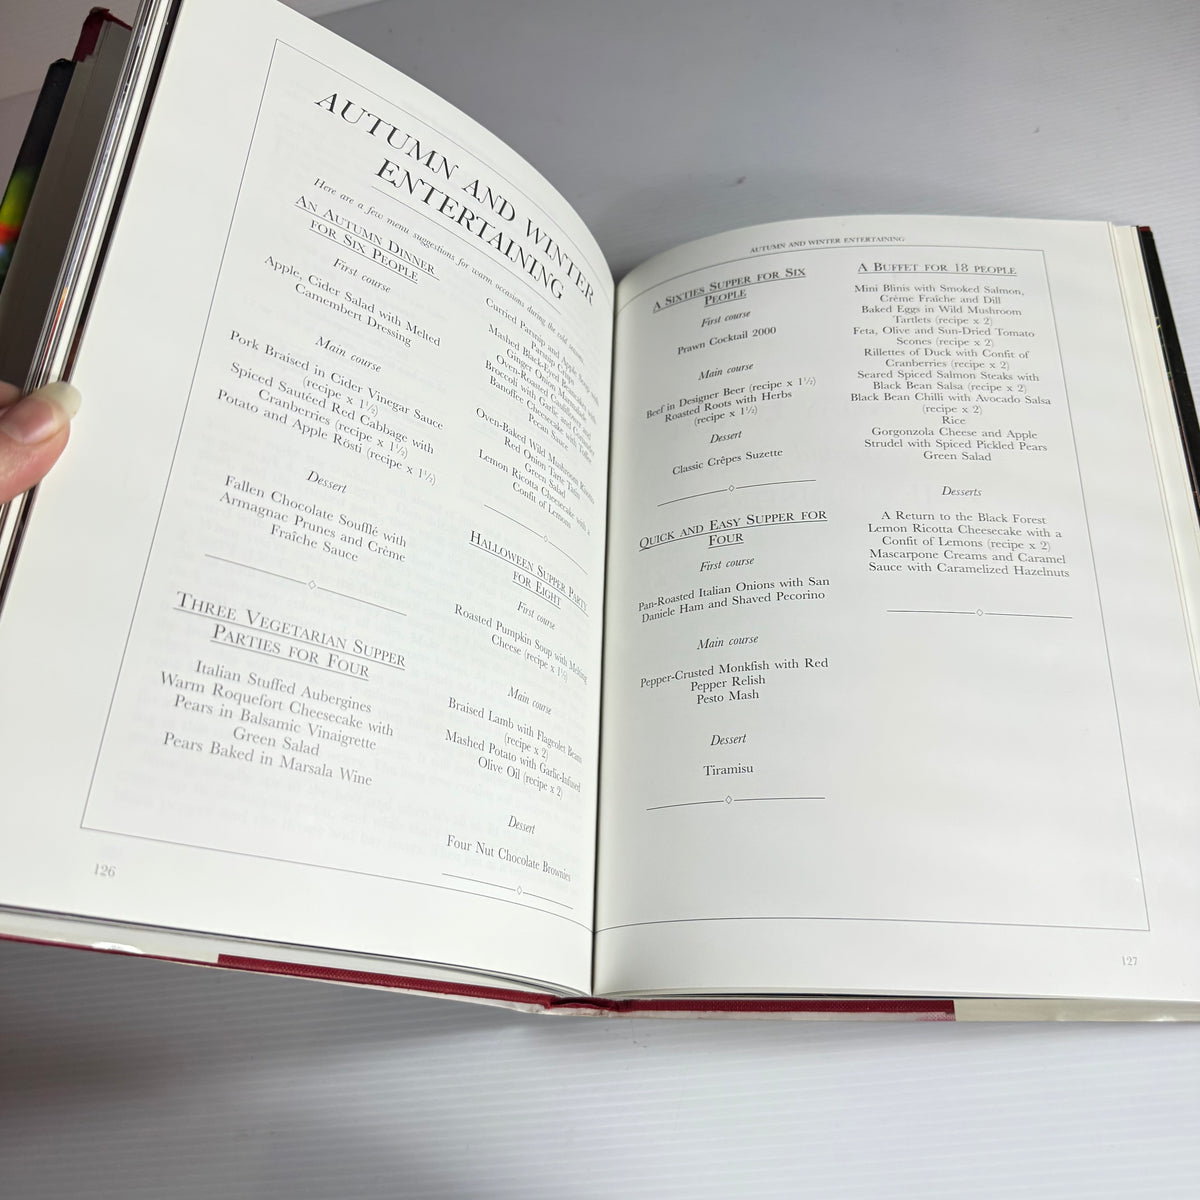 AUTUMN AND WINTER
ENTERTAINING
Here are a few menu suggestions for warm occasions during the cold season.
AN AUTUMN DINNER
FOR SIX PEOPLE
First course
Apple, Cider Salad with Melted
Camembert Dressing
Main course
Pork Braised in Cider Vinegar Sauce
(recipe x 1½)
Spiced Sautéed Red Cabbage with
Cranberries (recipe x 1½)
Potato and Apple Rösti (recipe x 1½)
Dessert
Fallen Chocolate Soufflé with
Armagnac Prunes and Crème
Fraîche Sauce
THREE VEGETARIAN SUPPER
PARTIES FOR FOUR
Italian Stuffed Aubergines
Warm Roquefort Cheesecake with
Pears in Balsamic Vinaigrette
Green Salad
Pears Baked in Marsala Wine
126
Curried Parsnip and Apple Soup with
Parsnip Crisps
Mashed Black-Eyed Beancakes with
Ginger Onion Marmalade
Oven-Roasted Cauliflower and
Broccoli with Garlic and Coriander
Banoffee Cheesecake with Toffee
Pecan Sauce
Oven-Baked Wild Mushroom Risotto
Red Onion Tarte Tatin
Green Salad
Lemon Ricotta Cheesecake with a
Confit of Lemons
HALLOWEEN SUPPER PARTY
FOR EIGHT
First course
Roasted Pumpkin Soup with Melting
Cheese (recipe x 1½)
Main course
Braised Lamb with Flageolet Beans
(recipe x 2)
Mashed Potato with Garlic-Infused
Olive Oil (recipe x 2)
Dessert
Four Nut Chocolate Brownies
AUTUMN AND WINTER ENTERTAINING
A SIXTIES SUPPER FOR SIX
PEOPLE
First course
Prawn Cocktail 2000
Main course
Beef in Designer Beer (recipe x 1½)
Roasted Roots with Herbs
(recipe x 1½)
Dessert
Classic Crêpes Suzette
QUICK AND EASY SUPPER FOR
FOUR
First course
Pan-Roasted Italian Onions with San
Daniele Ham and Shaved Pecorino
Main course
Pepper-Crusted Monkfish with Red
Pepper Relish
Pesto Mash
Dessert
Tiramisu
A BUFFET FOR 18 PEOPLE
Mini Blinis with Smoked Salmon,
Crème Fraîche and Dill
Baked Eggs in Wild Mushroom
Tartlets (recipe x 2)
Feta, Olive and Sun-Dried Tomato
Scones (recipe x 2)
Rillettes of Duck with Confit of
Cranberries (recipe x 2)
Seared Spiced Salmon Steaks with
Black Bean Salsa (recipe x 2)
Black Bean Chilli with Avocado Salsa
(recipe x 2)
Rice
Gorgonzola Cheese and Apple
Strudel with Spiced Pickled Pears
Green Salad
Desserts
A Return to the Black Forest
Lemon Ricotta Cheesecake with a
Confit of Lemons (recipe x 2)
Mascarpone Creams and Caramel
Sauce with Caramelized Hazelnuts
127